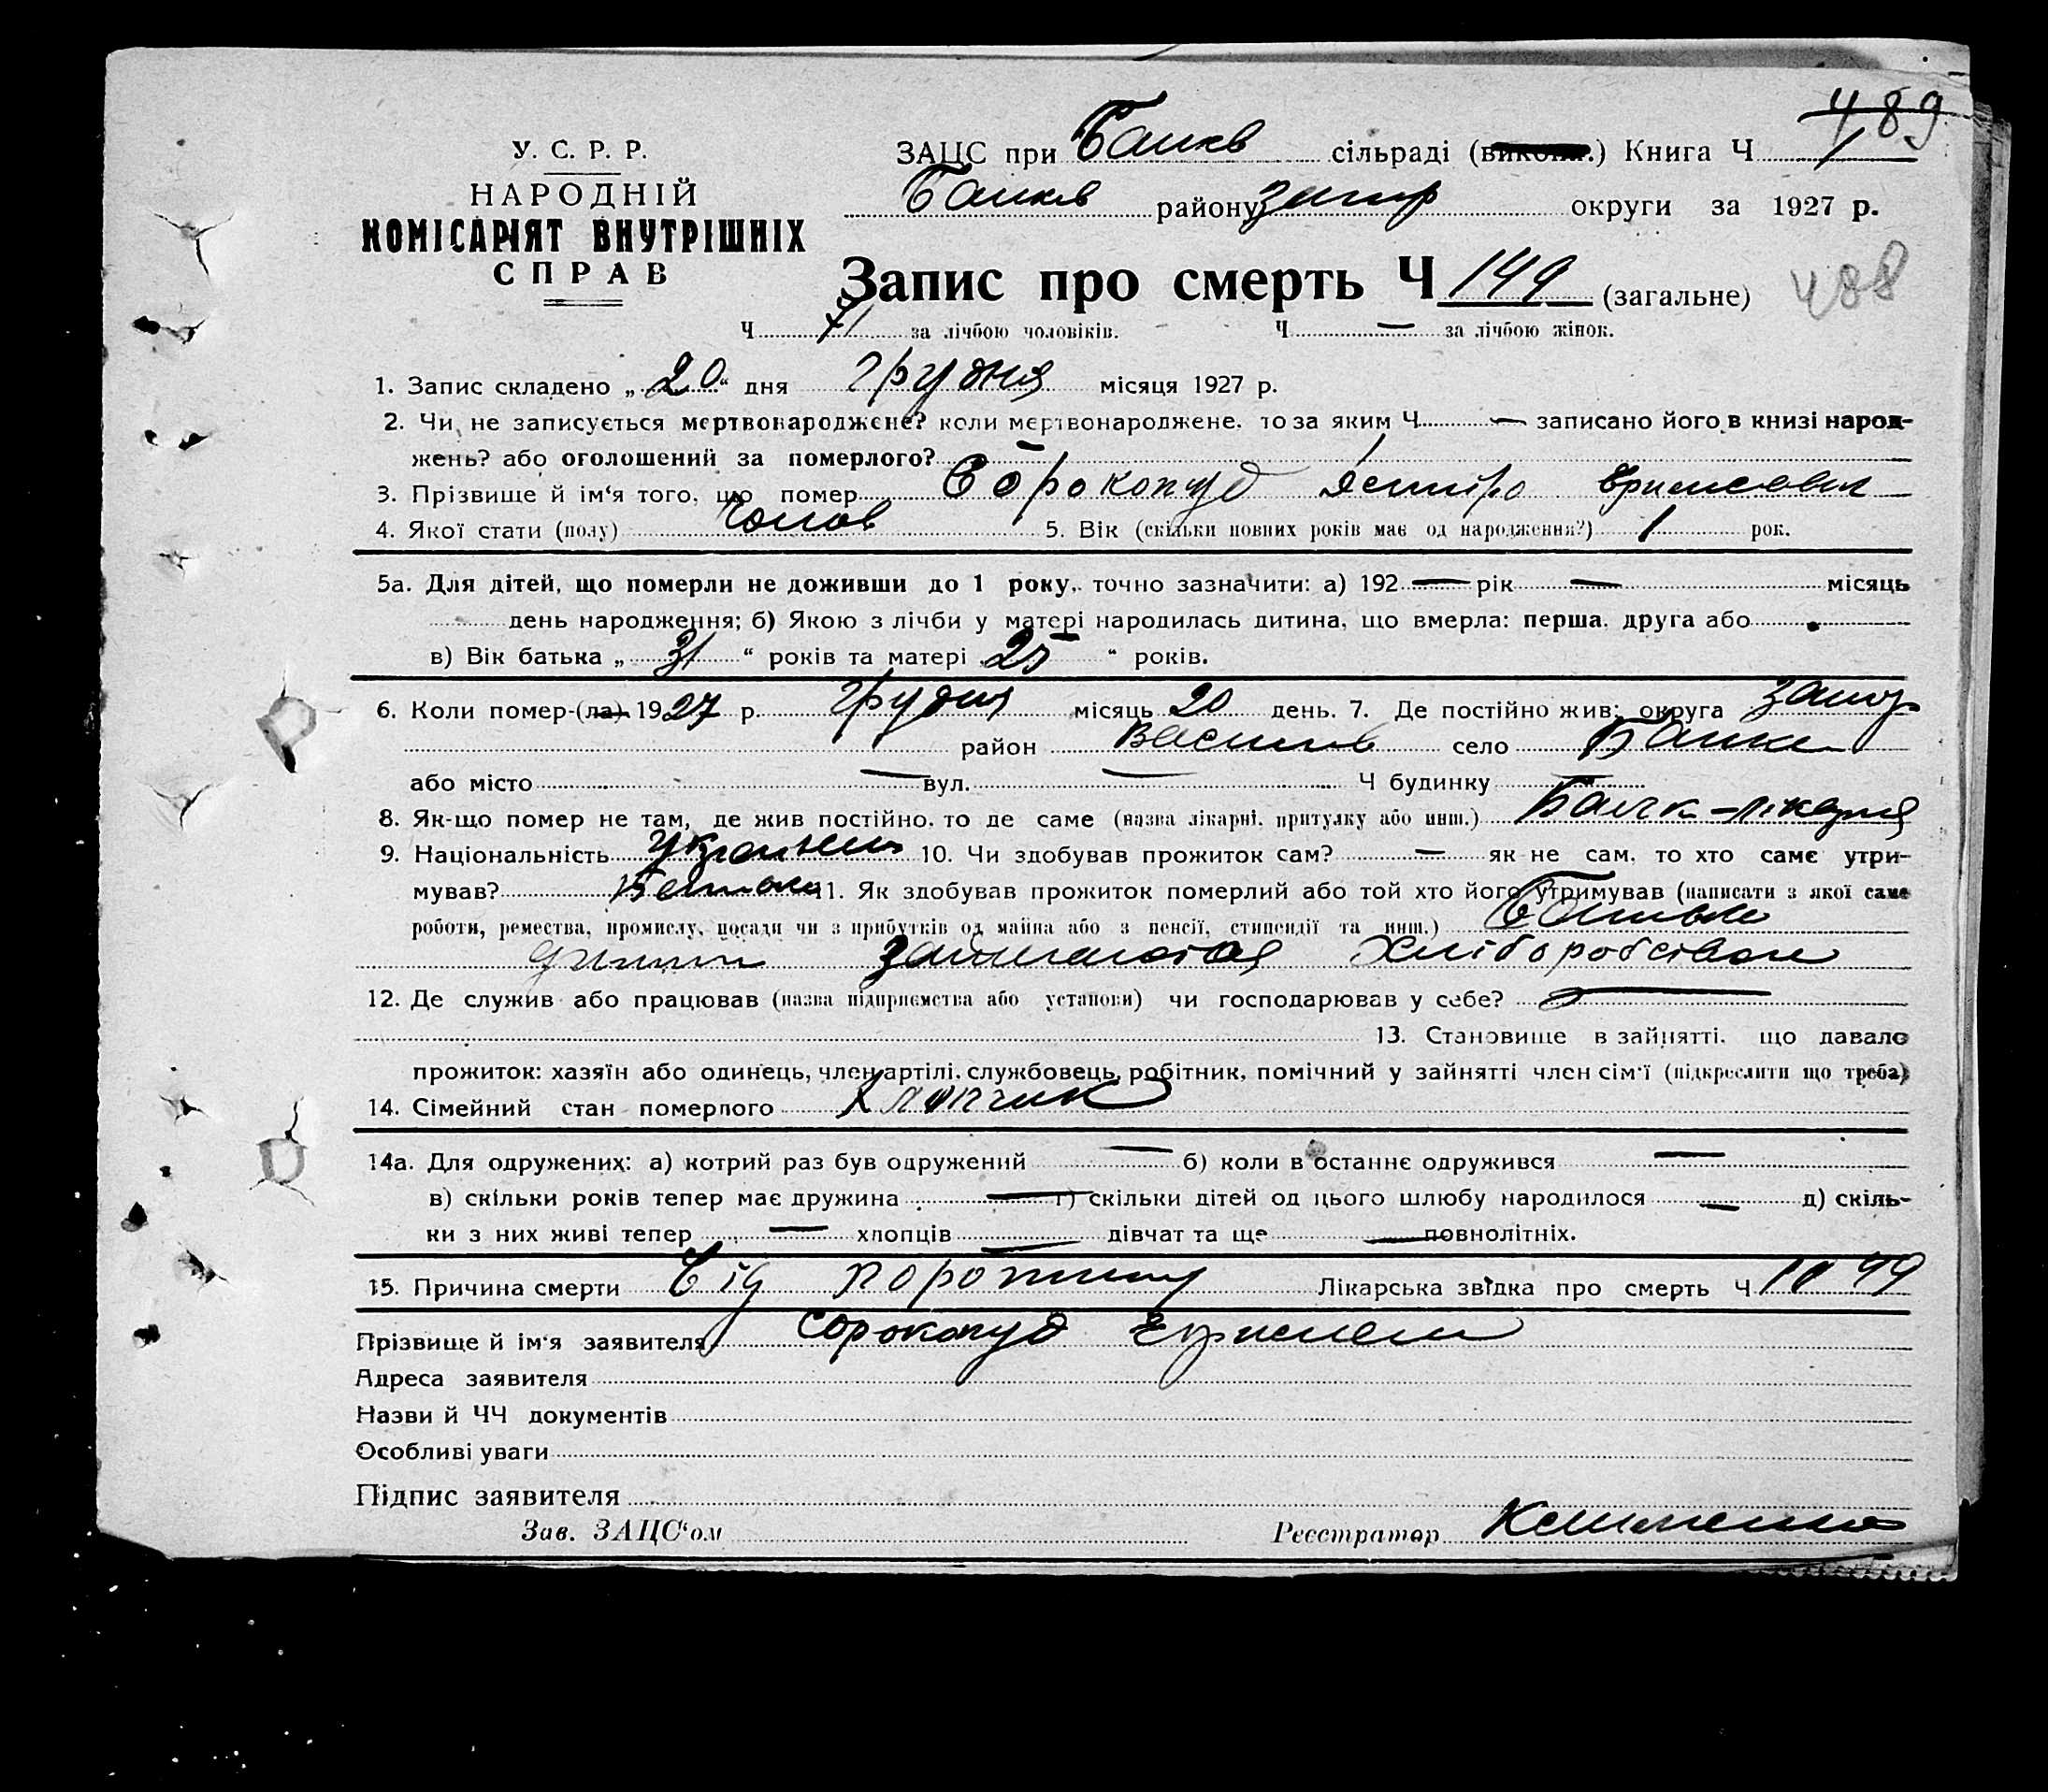 489
У. С. Р. Р.
НАРОДНІЙ
КОМІСАРІЯТ ВНУТРІШНІХ
СПРАВ
ЗАЦС при Балкв сільраді (викон.) Книга Ч
Балків району запор округи за 1927 р.
Запис про смерть Ч 149 (загальне)
488
Ч 71 за лічбою чоловіків. Ч — за лічбою жінок.
1. Запис складено „20“ дня грудня місяця 1927 р.
2. Чи не записується мертвонароджене? коли мертвонароджене, то за яким Ч — записано його в книзі народ-
жень? або оголошений за померлого? —
3. Прізвище й ім‘я того, що помер Сорокопуд
4. Якої стати (полу) Чолов 5. Вік (скільки повних років має од народження?) 1 рок.
5а. Для дітей, що померли не доживши до 1 року, точно зазначити: а) 192 — рік — місяць
день народження; б) Якою з лічби у матері народилась дитина, що вмерла: перша, друга або
в) Вік батька „31“ років та матері „25“ років.
6. Коли помер-(ла) 1927 р. грудня місяць 20 день. 7. Де постійно жив: округа Запор
район Василів село Балки
або місто — вул. — Ч будинку —
8. Як-що помер не там, де жив постійно, то де саме (назва лікарні, притулку або инш.) Балк-лікарня
9. Національність українец 10. Чи здобував прожиток сам? — як не сам, то хто саме утри-
мував? Батько 11. Як здобував прожиток померлий або той хто його утримував (написати з якої саме
роботи, ремества, промислу, посади чи з прибутків од майна або з пенсії, стипендії та инш.) Батько
займається Хліборобством
12. Де служив або працював (назва підприємства або установи) чи господарював у себе? —
13. Становище в зайнятті, що давало
прожиток: хазяїн або одинець, член артілі, службовець, робітник, помічний у зайнятті член сім‘ї (підкреслити що треба)
14. Сімейний стан померлого Хлопчик
14а. Для одружених: а) котрий раз був одружений — б) коли в останнє одружився —
в) скільки років тепер має дружина — г) скільки дітей од цього шлюбу народилося — д) скіль-
ки з них живі тепер — хлопців — дівчат та ще — повнолітніх.
15. Причина смерти Від Лікарська звідка про смерть Ч
Прізвище й ім‘я заявителя Сорокопуд
Адреса заявителя
Назви й ЧЧ документів
Особливі уваги
Підпис заявителя
Зав. ЗАЦС‘ом Реєстратор Клименко